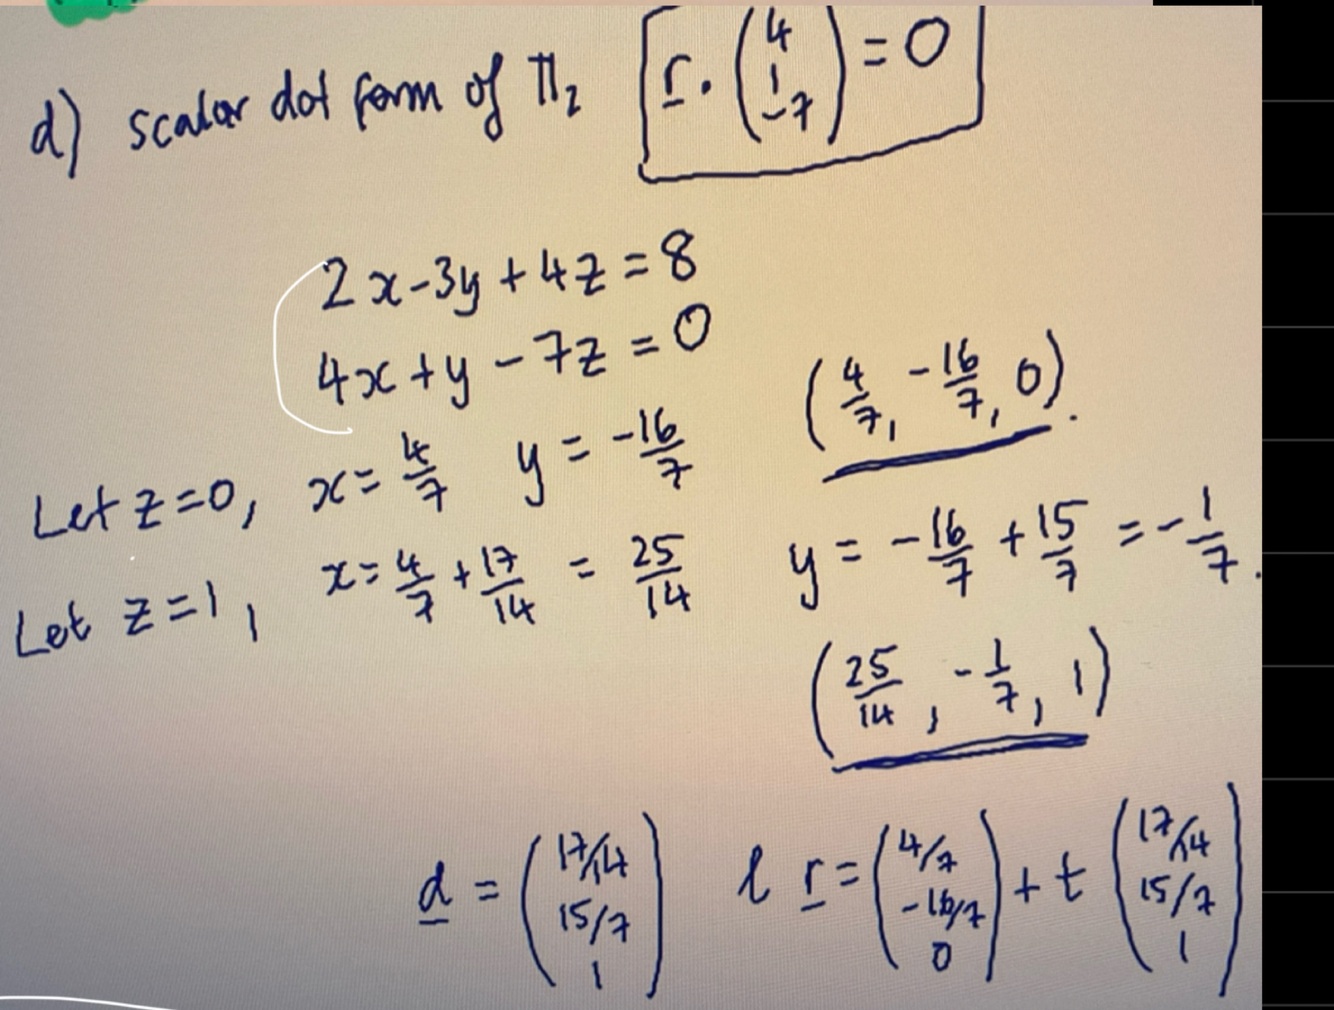 d) scalar dot form of Π₂ r. (4 1 -7) = 0
2x-3y+4z=8
4x+y-7z=0
(4/7, -16/7, 0).
Let z=0, x=4/7 y=-16/7
Let z=1, x=4/7+17/14=25/14 y=-16/7+15/7=-1/7.
(25/14, -1/7, 1)
d = (17/14 15/7 1) l r=(4/7 -16/7 0)+t(17/14 15/7 1)